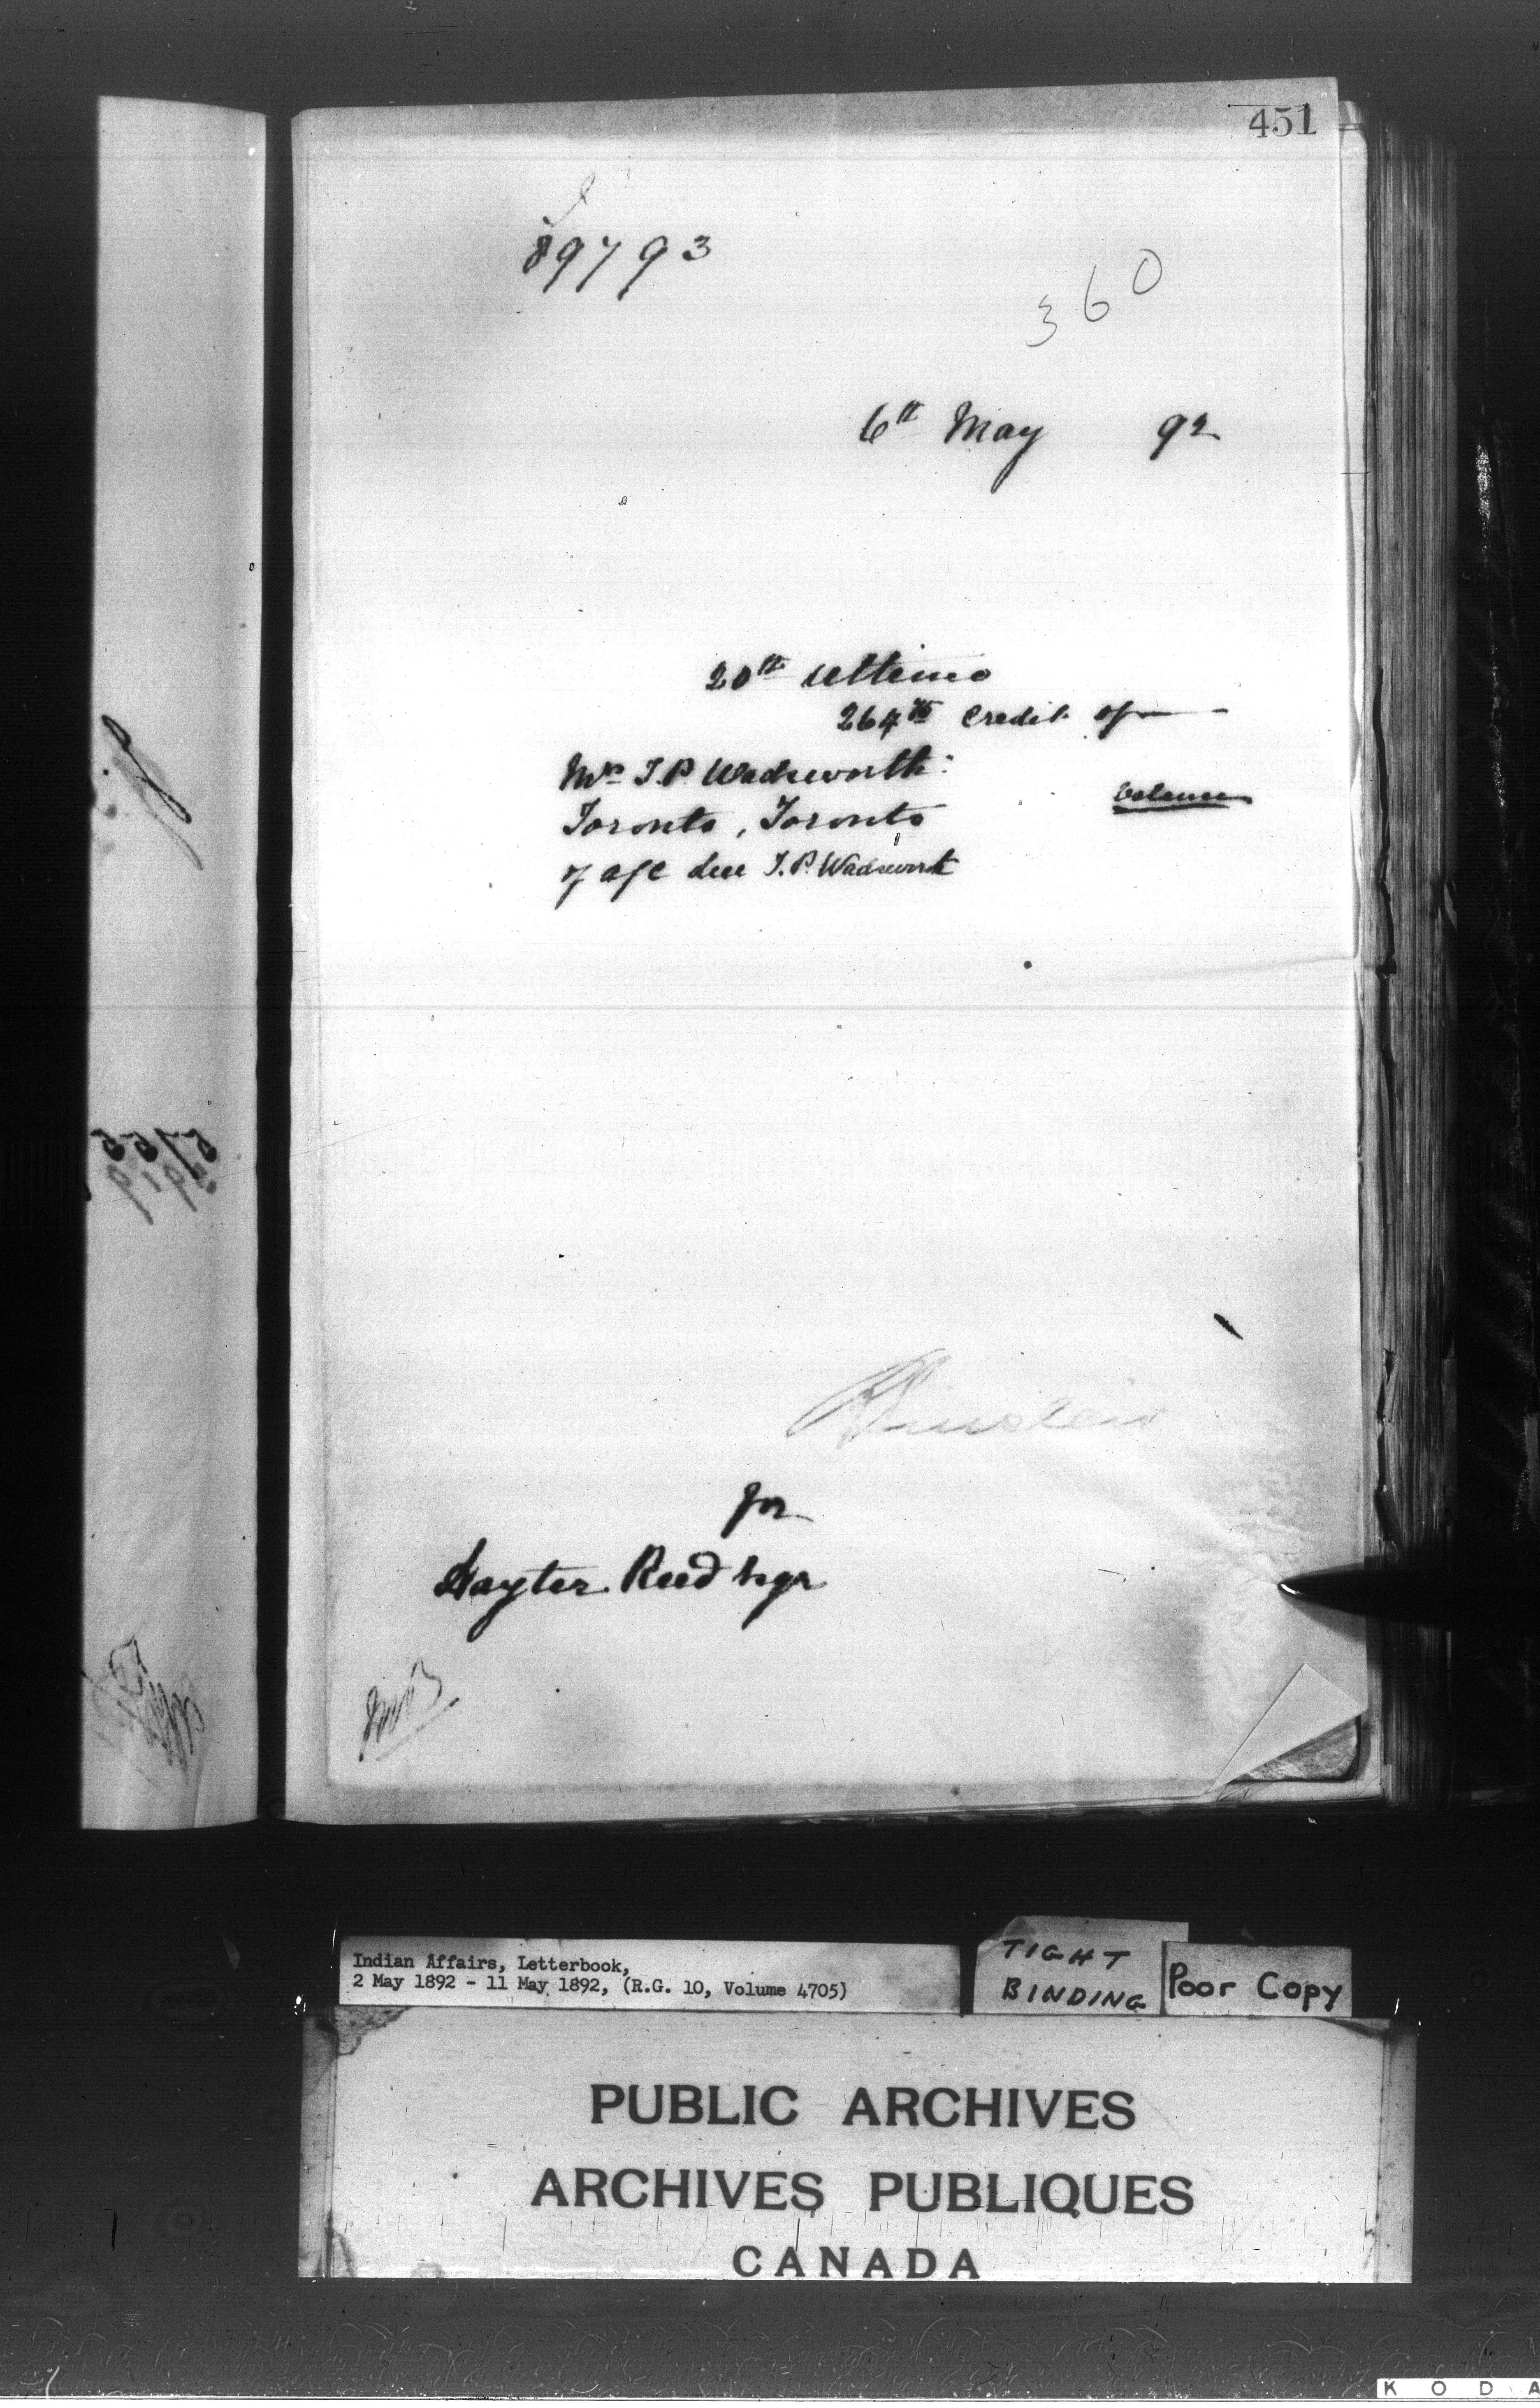 451
89793
360
6th May 92
20th ultimo
264 75 Credit of
Mr T.P. Wadsworth
balance
Toronto, Toronto
of a/c due T.P. Wadsworth
for
Hayter Reed Esqr
Indian Affairs, Letterbook,
2 May 1892 - 11 May 1892, (R.G. 10, Volume 4705)
TIGHT
BINDING
Poor Copy
PUBLIC ARCHIVES
ARCHIVES PUBLIQUES
CANADA
K O D A